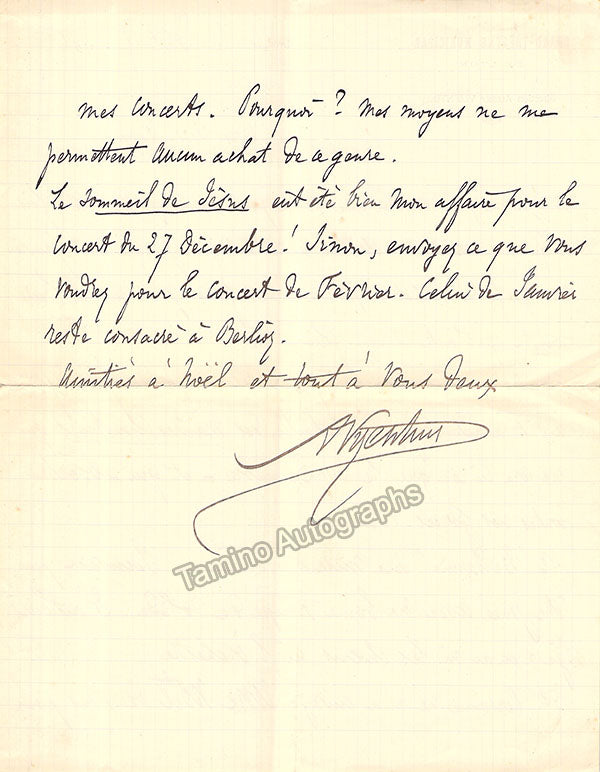 mes concerts. Pourquoi ? Mes moyens ne me
permettent aucun achat de ce genre.
Le Sommeil de Jésus eut été bien mon affaire pour le
concert du 27 Décembre ! Sinon, envoyez ce que vous
voudrez pour le concert de Février. Celui de Janvier
reste consacré à Berlioz.
Amitiés à Noël et tout à vous deux
Tamino Autographs